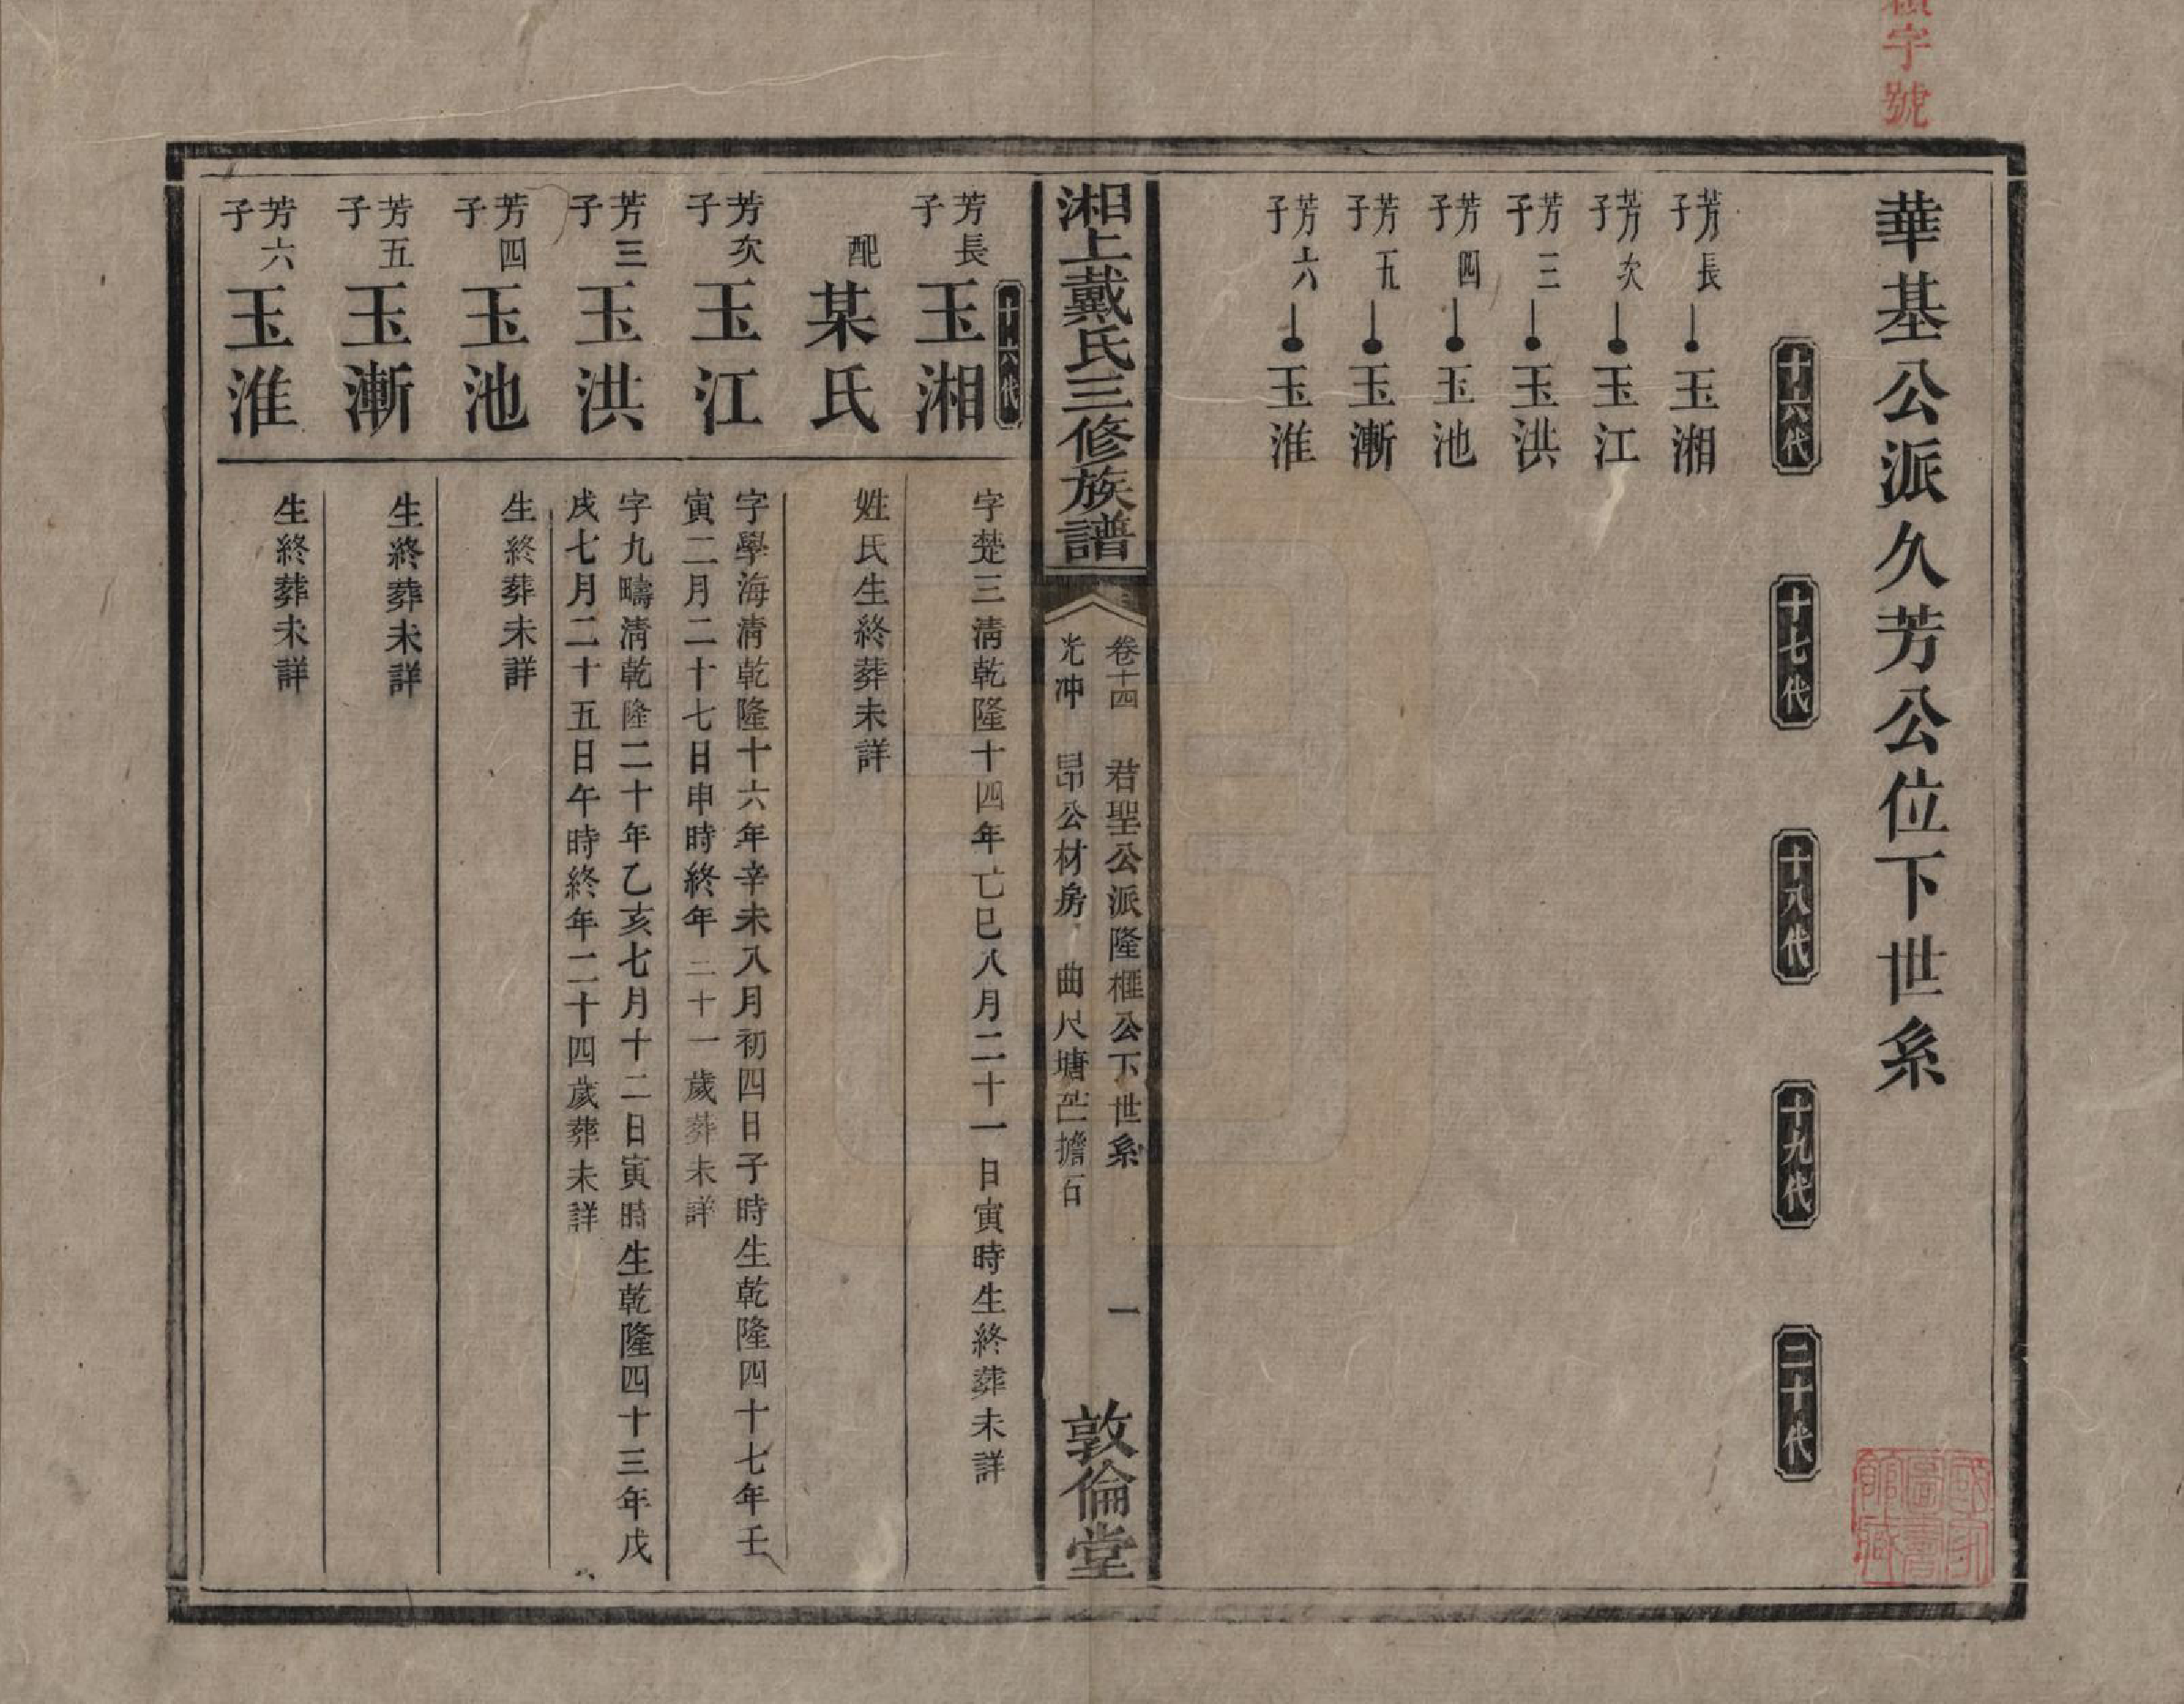 字號
華基公派久芳公位下世系
十六代
十七代
十八代
十九代
二十代
芳長子 玉湘
芳次子 玉江
芳三子 玉洪
芳四子 玉池
芳五子 玉漸
芳六子 玉淮
湘上戴氏三修族譜
卷十四 君聖公派隆榧公下世系 一
光冲 昂公材房 曲尺塘 擔石
敦倫堂
十六代
芳長子 玉湘
字楚三淸乾隆十四年亡巳八月二十一日寅時生終葬未詳
配 某氏
姓氏生終葬未詳
芳次子 玉江
字學海淸乾隆十六年辛未八月初四日子時生乾隆四十七年壬
寅二月二十七日申時終年二十一歲葬未詳
芳三子 玉洪
字九疇淸乾隆二十年乙亥七月十二日寅時生乾隆四十三年戊
戌七月二十五日午時終年二十四歲葬未詳
芳四子 玉池
生終葬未詳
芳五子 玉漸
生終葬未詳
芳六子 玉淮
生終葬未詳
國家圖書館藏